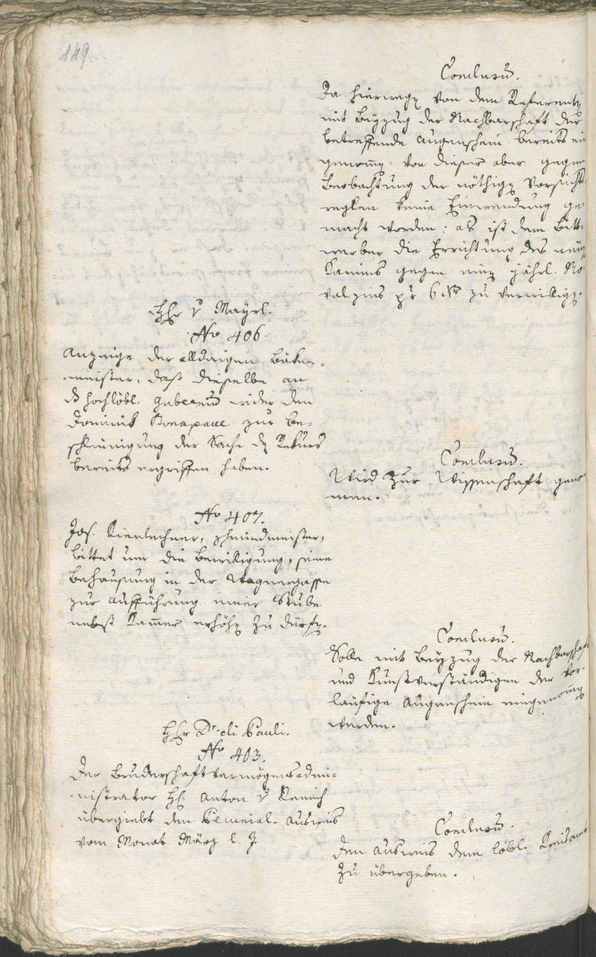 149
Conclusū.
Da hierwegen von dem Referente
mit Beyzug der Nachbarschaft der
betreffende Augenschein bereits ein
genomen, von dieser aber gegen
Beobachtung der nöthigen Vorsichts
reglen keine Einwendung ge-
macht worden: als ist dem Bitt-
werber die Errichtung des neuen
Kamins gegen einen jährl. Re
val zins pr 6 Kr zu verwilligen.
Hr v Mayrl.
No 406.
Anzeige der alldaigen Bäken-
meister, daß dieselbe an
das hochlöbl. Gubernium wider den
Dominik Bonapace zur Be-
schleunigung der Sache den Rekurs
bereits ergriffen haben.
Conclusū.
Wird zur Wissenschaft geno-
men.
No 407.
Jos. Kienlechner, Schmidmeister,
bittet um die Bewilligung, seine
Behausung in der Wagnergasse
zur Aufführung einer Stube
nebst Kammer erhöhen zu dürfen.
Conclusū.
Solle mit Beyzug der Nachbarschaft
und Kunstverständigen der vor-
läufige Augenschein eingenomen
werden.
Hr Dr. eli Pauli.
No 403.
Der Bruderschaftvermögensadmi-
nistrator H. Anton v
übergiebt den Ausweis
vom Monat März l. J.
Conclusū.
Den Ausweis dem löbl. Kreisamt
zu übergeben.